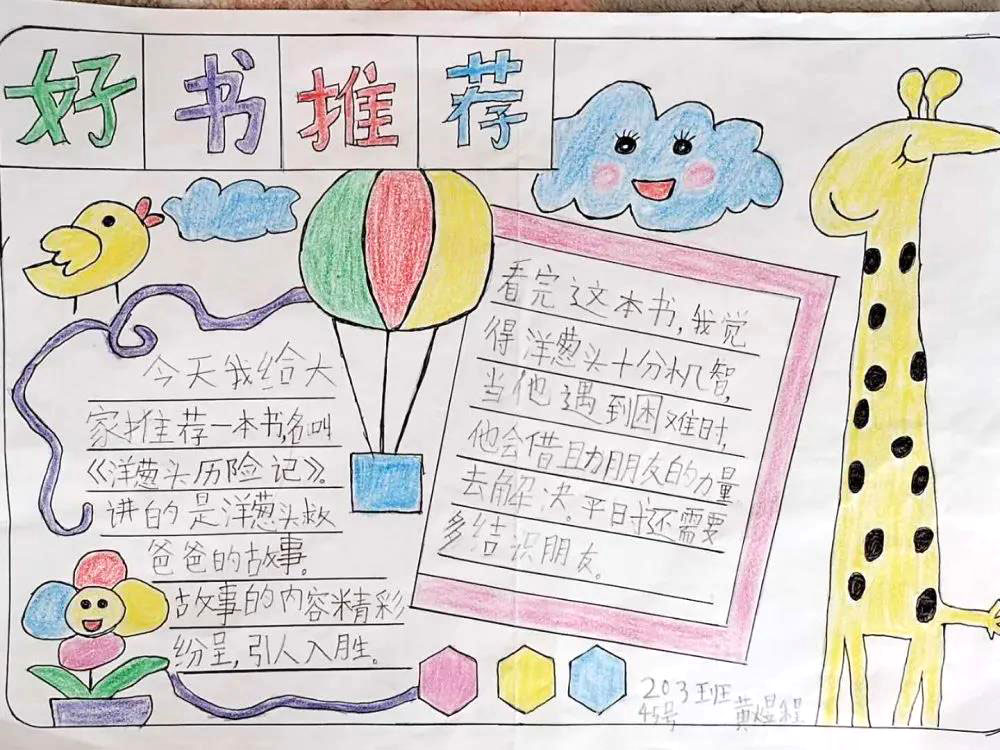 好书推荐
今天我给大
家推荐一本书,名叫
《洋葱头历险记》。
讲的是洋葱头救
爸爸的故事。
故事的内容精彩
纷呈,引人入胜。
看完这本书,我觉
得洋葱头十分机智,
当他遇到困难时,
他会借助朋友的力量
去解决。平时还需要
多结识朋友。
203班
45号
黄煜程